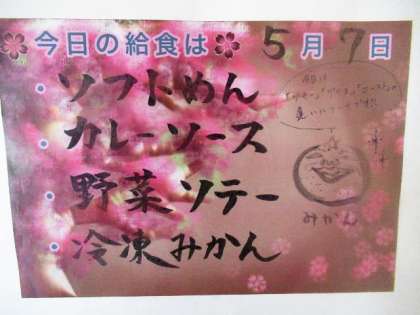 今日の給食は 5月7日
・ソフトめん
・カレーソース
・野菜ソテー
・冷凍みかん
みかん